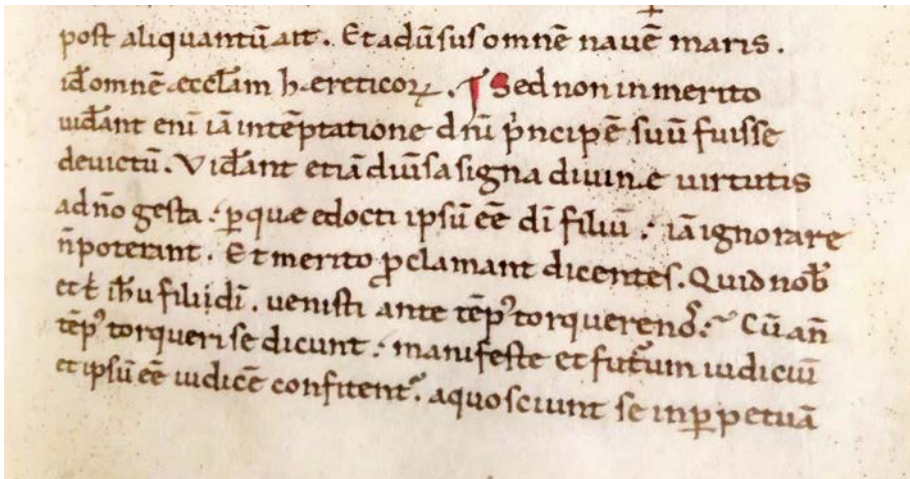 post aliquantū ait . Et adūsus omnē nauē maris .
id̄ omnē æccl̄am hæreticoꝝ . Sed non inmerito
uid̄ant enī iā intēptatione dn̄m pͥncipē suū fuisse
deuictū . Vid̄ant etiā diu̅sa signa diuinæ uirtutis
ad n̄o gesta : ꝑ quæ edocti ipsū eē dī filiū : iā ignorare
n̄ poterant . Et merito ꝓclamant dicentes . Quid nob̄
et t̄ ih̄u filii dī . uenisti ante tēpꝰ torquere nos : Cū an̄
tēpꝰ torqueri se dicunt : manifeste et futurum iudiciū
et ipsū eē iudicē confitentᷣ . a quo sciunt se in ꝑpetuā